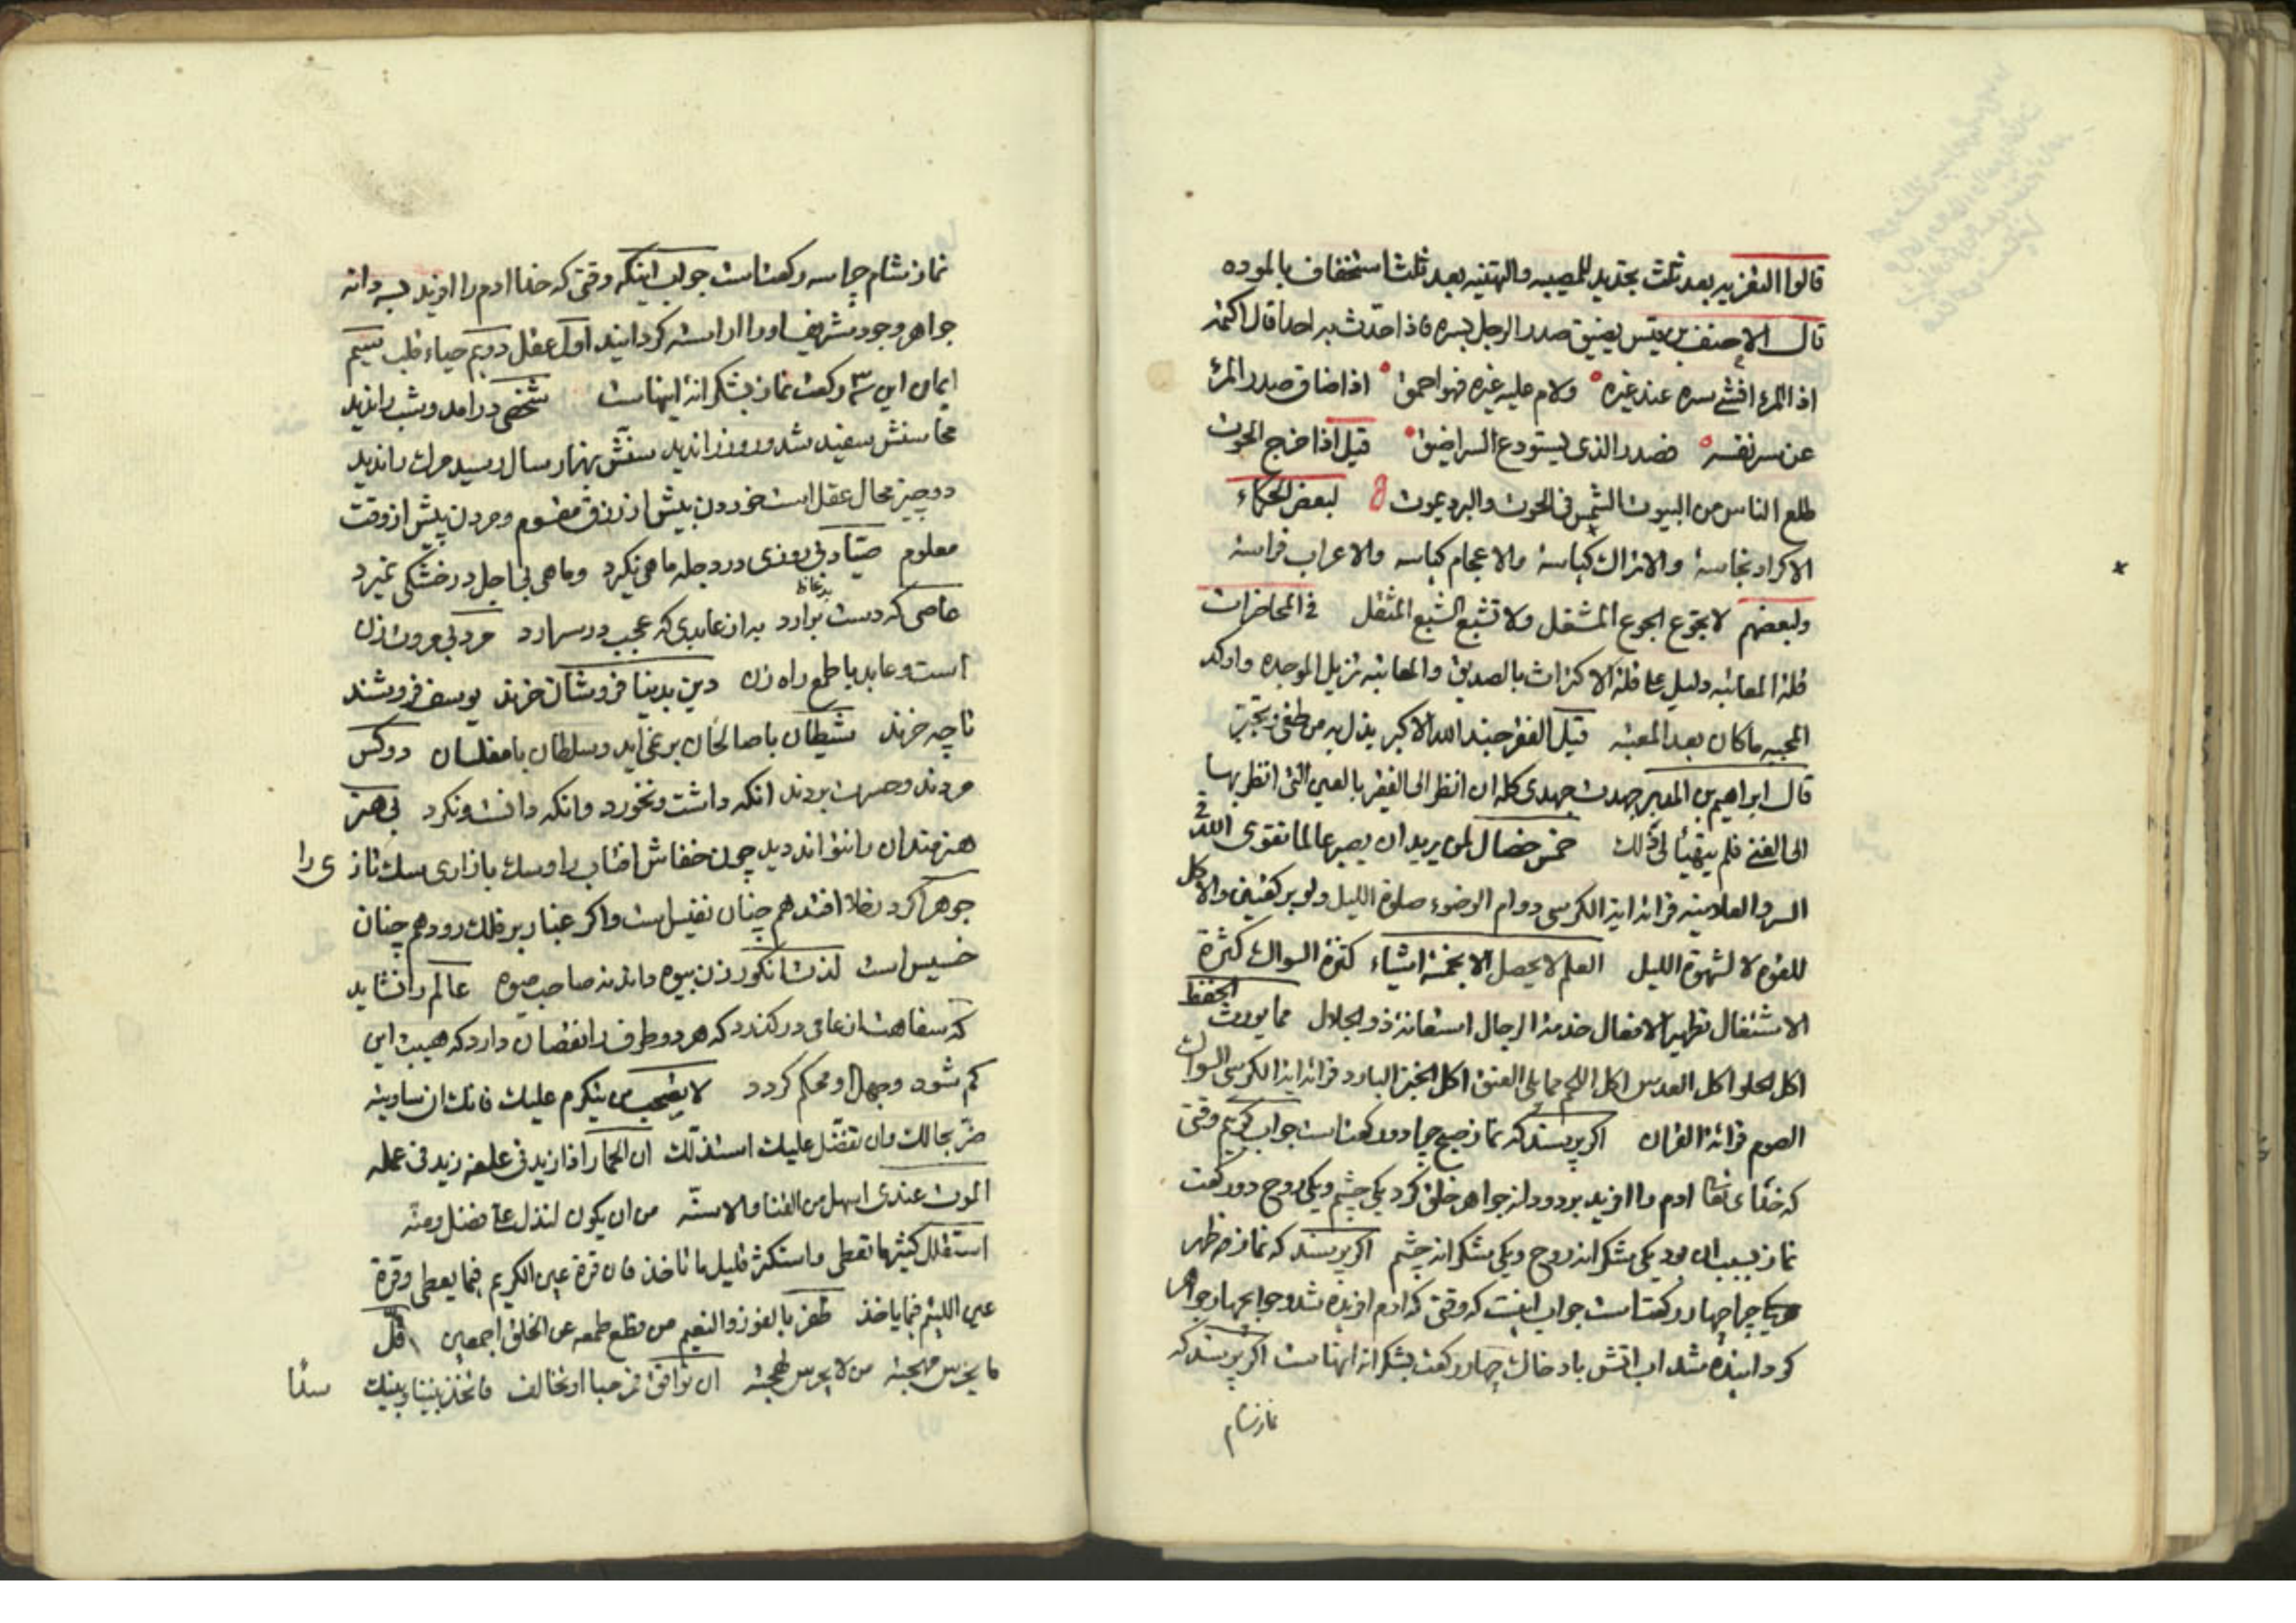 قالوا التعزیه بعد ثلث تجدید للمصیبه والتهنیه بعد ثلث استخفاف بالموده
قال الاحنف بن قیس یضیق صدر الرجل بسره فاذا حدّث به احدا قال اکتمه
اذا المرء افشی سره عند غیره ولام علیه غیره فهو احمق اذا ضاق صدر المرء
عن سر نفسه فصدر الذی یستودع السر اضیق قیل اذا خرج الحوت
طلع الناس من البیوت الشمس فی الحوت والبرد یموت لبعض الحکماء
الاکراد نجاسة والاتراک کیاسة والاعجام کیاسه والاعراب فراسة
ولبعضهم لا تجوّع الجوع المشغل ولا تشبع الشبع المثقل فی المحاضرات
قلة المعاتبه دلیل علی قلة الاکتراث بالصدیق والمعاتبه تزیل الموجده واوکد
المحبه ماکان بعد المعتبه قیل الفقر جند الله الاکبر یذل به من طغی وتجبّر
قال ابراهیم بن المدبر جهدت جهدی کله ان انظر الی الفقیر بالعین التی انظر بها
الی الغنی فلم یتهیأ لی ذلک خمس خصال لمن یرید ان یصیر عالما تقوی الله فی
السر والعلانیه قرائة ایة الکرسی دوام الوضوء صلوة اللیل ولو برکعتین والاکل
للقوة لا لشهوة اللیل العلم لا یحصل الا بخمسة اشیاء کثرة السوال کثرة
الاشتغال تطهیر الافعال خدمة الرجال استعانة ذو الجلال مما یورث الحفظ
اکل الحلو اکل العدس اکل اللحم مما یلی العنق اکل الخبز البارد قرائة ایة الکرسی السواک
الصوم قرائة القران اکر پرسند که نماز صبح چرا دو رکعتاست جواب کویم وقتی
که خدای تعالی ادم را افرید بر دو دانه جواهر خلق کرد یکی چشم ویکی روح دو رکعت
نماز بسبب ان دو یکی شکرانه روح ویکی شکرانه چشم اکر پرسند که نماز فرض ظهر
چرا چهار رکعتاست جواب اینست که وقتی که ادم افریده شد وجوابچهار جواهر
کردانیده شد اب اتش باد خاک چهار رکعت بشکرانه اینهاست اکر پرسند که
نماز شام
نماز شام چرا سه رکعتاست جواب اینکه وقتی که خدا ادم را افرید بسه دانه
جواهر وجود شریف اورا اراسته کردانید اول عقل دویم حیاء قلب سیم
ایمان این ۳ رکعت نماز بشکرانهٔ اینهاست شخصی درامد وشب راندید
محاسنش سفید شد وروز راندید سنّش بهزار سال رسید مرک راندید
دو چیز محال عقل است خوردن بیش از رزق مقسوم ومردن پیش از وقت
معلوم صیّاد بی روزی در دجله ماهی نکیرد وماهی بی اجل در خشکی نمیرد
عاصی که دست بردارد به از عابدی که عجب در سر دارد مرد بی مروت زن
است وعابد با طمع راه زن دین بدنیا فروشان خرند یوسف فروشند
تا چه خرند شیطان با صالحان بر نمی اید وسلطان با مفلسان دو کس
مردند وحسرت بردند انکه داشت ونخورد وانکه دانست ونکرد بی هنر
هنرمندان را نتواند دید چون خفاش افتاب را وسک بازاری سک تازی را
جوهر اکر در خلا افتد هم چنان نفیس است واکر غبار بر فلک رود هم چنان
خسیس است لذت انکور زن بیوه داند نه صاحب میوه عالم را نشاید
که سفاهت از عامی در کذرد که هر دو طرف را نقصان دارد که هیبت این
کم شود وجهل او محکم کردد لا تصحب من یتکرم علیک فانک ان ساویته
ضرّ بحالک وان تفضّل علیک استذلّک ان الحمار اذا زید فی علفه زید فی عمله
الموت عندی اسهل من القنا والاسنّه من ان یکون لنذل علی فضل ومنّه
استقلل کثیر ما تعطی واستکثر قلیل ما تاخذ فان قرة عین الکریم فیما یعطی وقرة
عین اللئیم فیما یاخذ ظفر بالفوز والنعیم من قطع طمعه عن الخلق اجمعین قلّ
ما یحرس مهجته من لا یحرس لهجته ان توافق فمرحبا او تخالف فاتخذ بیننا وبینک سدّا